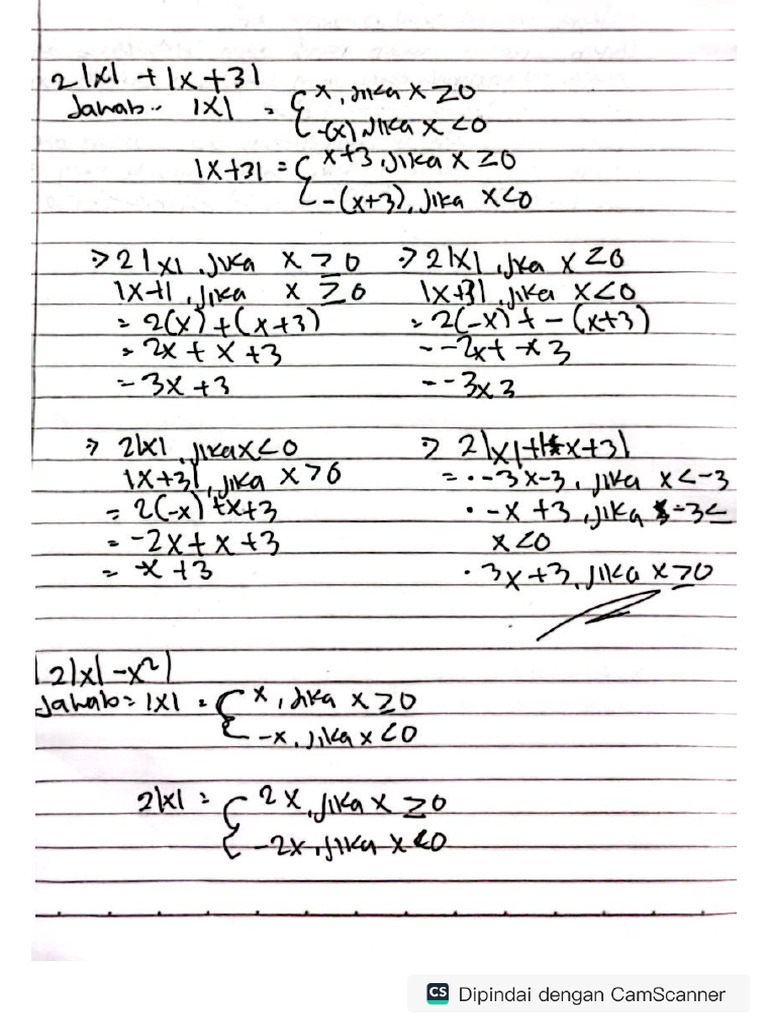 2|x| + |x+3|
Jawab .. |x| = { x, Jika x ≥ 0
{ -(x), Jika x < 0
|x+3| = { x+3, Jika x ≥ 0
{ -(x+3), Jika x < 0
⇒ 2|x|, Jika x ≥ 0
|x+1|, Jika x ≥ 0
= 2(x) + (x+3)
= 2x + x + 3
= 3x + 3
⇒ 2|x|, Jika x ≤ 0
|x+3|, Jika x < 0
= 2(-x) + -(x+3)
= -2x + -x 3
= -3x 3
⇒ 2|x|, Jika x < 0
|x+3|, Jika x > 0
= 2(-x) + x+3
= -2x + x + 3
= -x + 3
⇒ 2|x| + |x+3|
= · -3x-3, Jika x < -3
· -x + 3, Jika -3 ≤
x < 0
· 3x + 3, Jika x ≥ 0
|2|x| - x²|
Jawab = |x| = { x, Jika x ≥ 0
{ -x, Jika x < 0
2|x| = { 2x, Jika x ≥ 0
{ -2x, Jika x < 0
CS Dipindai dengan CamScanner